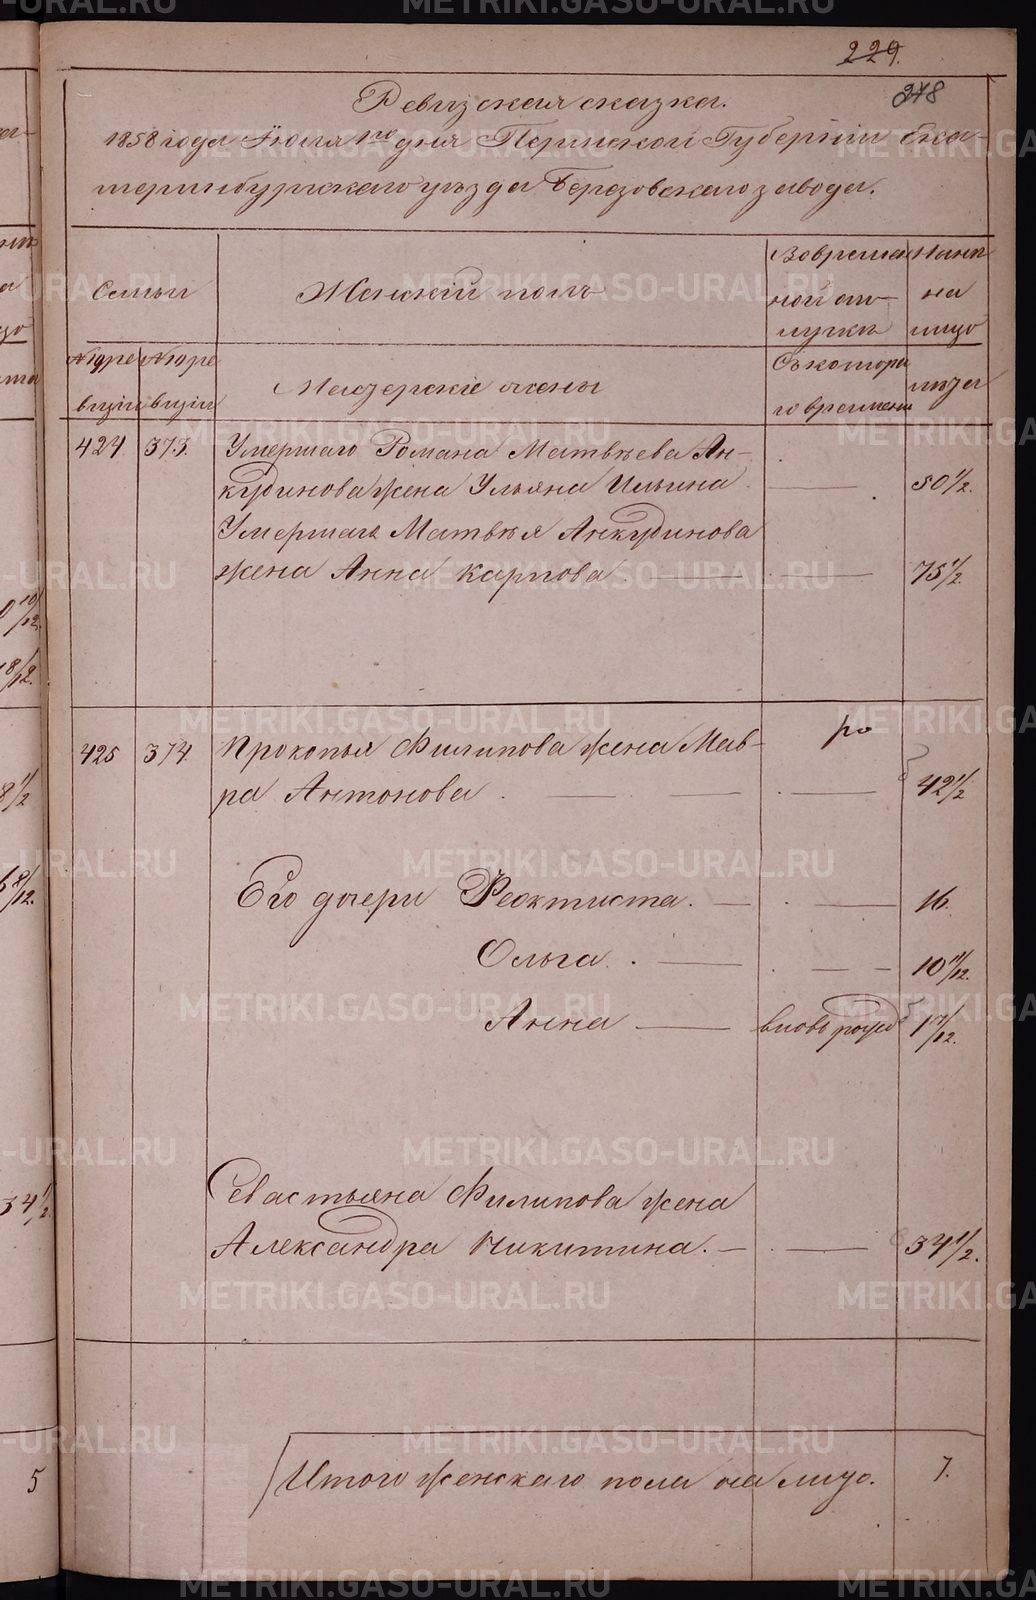 229.
278
Ревизская сказка.
1858 года Іюля 1го дня Пермской Губерніи Ека-
теринбургскаго уѣзда Березовскаго завода.
Семьи
Женскій полъ
Вовремен
ной от-
лучкѣ
Нынѣ
на
лицо
№ по ре
визіи
№ по ре
визіи
Мастерскіе жены
Съ котора
го времени
лѣта
424. 373. Умершаго Романа Матвѣева Ан-
кудинова жена Ульяна Ильина. 50 1/2.
Умершаго Матвѣя Анкудинова
жена Анна Карпова. 75 1/2.
425 374. Прокопья Филипова жена Мав-
ра Антонова. 42 1/2
Его дочери Феоктиста. 16.
Ольга. 10 11/12.
Анна вновь рожд 1 7/12.
Севастьяна Филипова жена
Александра Никитина. 34 1/2.
Итого женскаго пола на лицо. 7.
10/12.
8/12.
8 1/2
8/12.
34 1/2
5
METRIKI.GASO-URAL.RU